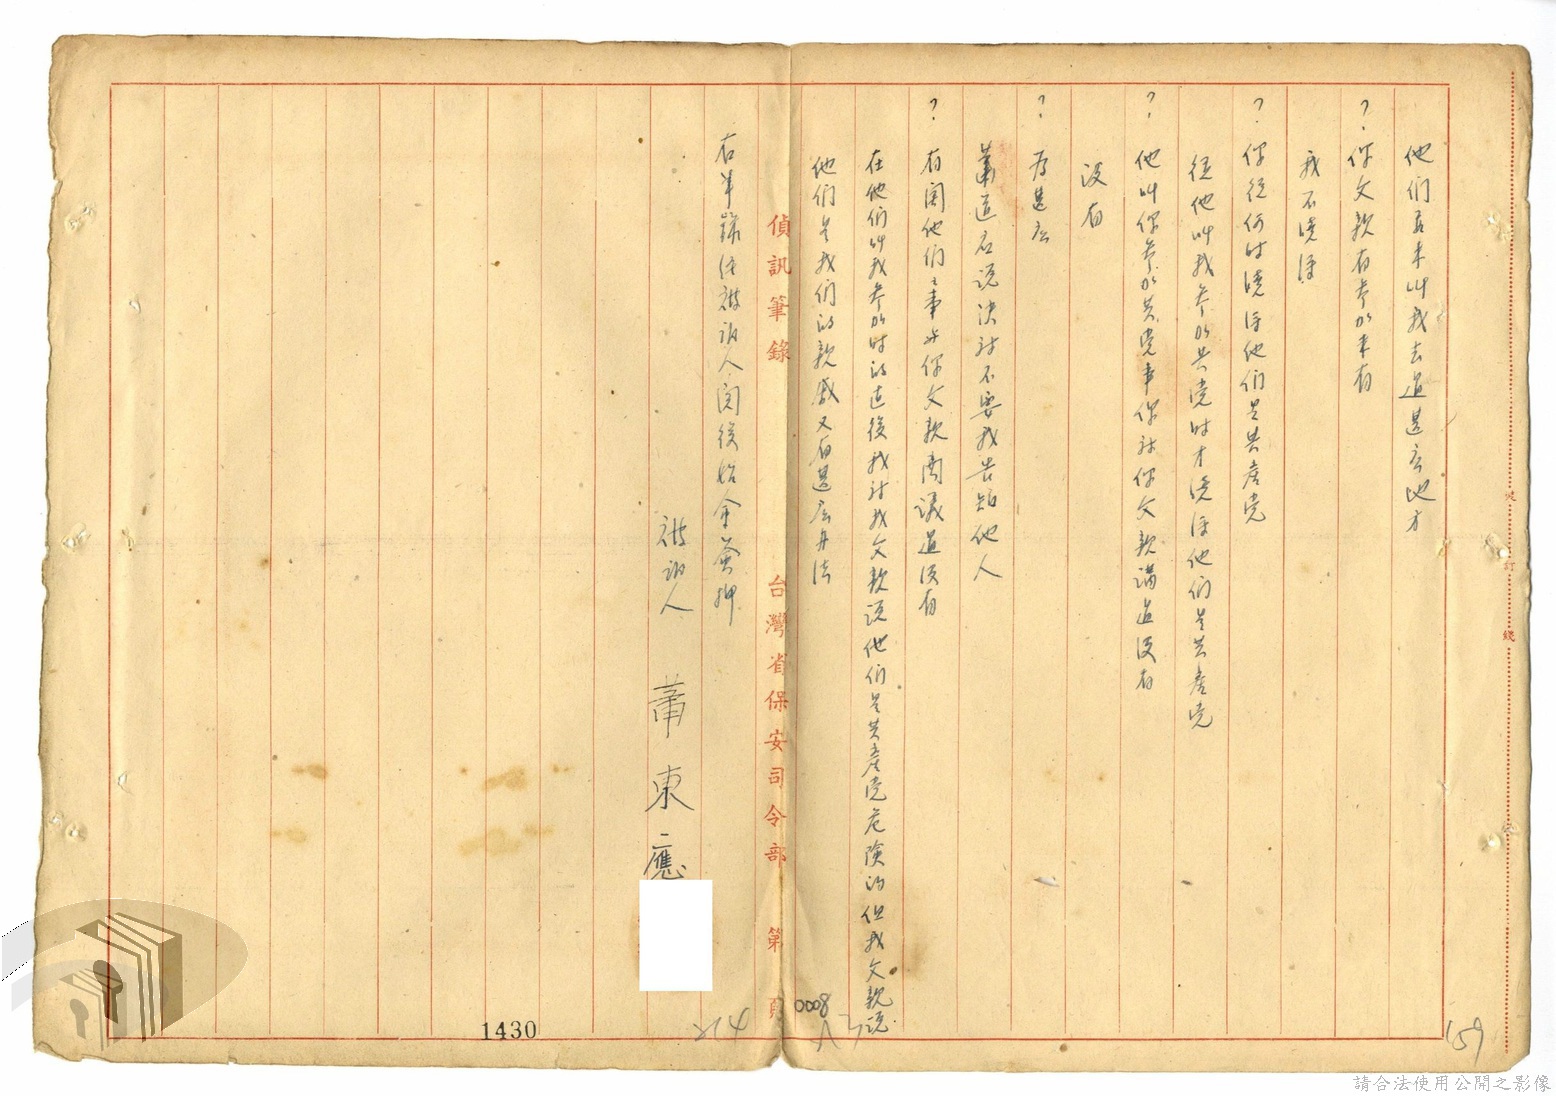 他們言未叫我去過甚么地方
？你父親有參加未有
我不曉得
？你從何时曉得他們是共產党
從他叫我參加共党时才曉得他們是共產党
？他叫你參加共党事你对你父親講過沒有
沒有
？为甚么
蕭道石说决对不要我告知他人
？有関他們之事与你父親商議過沒有
在他們叫我參加时的过後我对我父親说他們是共產党危険的但我父親说
他們是我們的親戚又有甚么办法
偵訊筆錄 台灣省保安司令部 第 頁
右筆錄经被訊人閱後始令簽押
被訊人 蕭東應
1430
0008
214
213
159
裝
訂
綫
請合法使用公開之影像